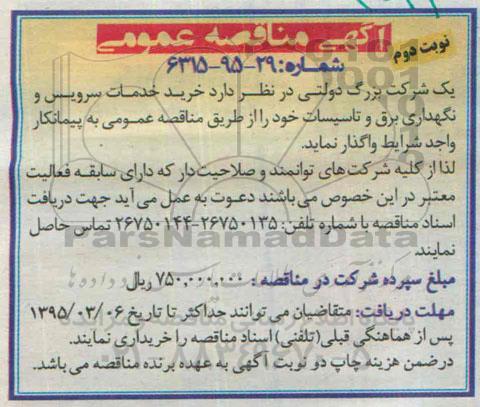 آگهی مناقصه عمومی
نوبت دوم
شماره: ۲۹-۹۵-۶۳۱۵
یک شرکت بزرگ دولتی در نظر دارد خرید خدمات سرویس و
نگهداری برق و تاسیسات خود را از طریق مناقصه عمومی به پیمانکار
واجد شرایط واگذار نماید.
لذا از کلیه شرکت‌های توانمند و صلاحیت‌دار که دارای سابقه فعالیت
معتبر در این خصوص می‌باشند دعوت به عمل می‌آید جهت دریافت
اسناد مناقصه با شماره تلفن: ۲۶۷۵۰۱۳۵-۲۶۷۵۰۱۴۴ تماس حاصل
نمایند.
ParsNamadData
مبلغ سپرده شرکت در مناقصه : ۷۵۰,۰۰۰,۰۰۰ ریال
مهلت دریافت: متقاضیان می توانند حداکثر تا تاریخ ۱۳۹۵/۰۳/۰۶
پس از هماهنگی قبلی(تلفنی) اسناد مناقصه را خریداری نمایند.
درضمن هزینه چاپ دو نوبت آگهی به عهده برنده مناقصه می‌باشد.